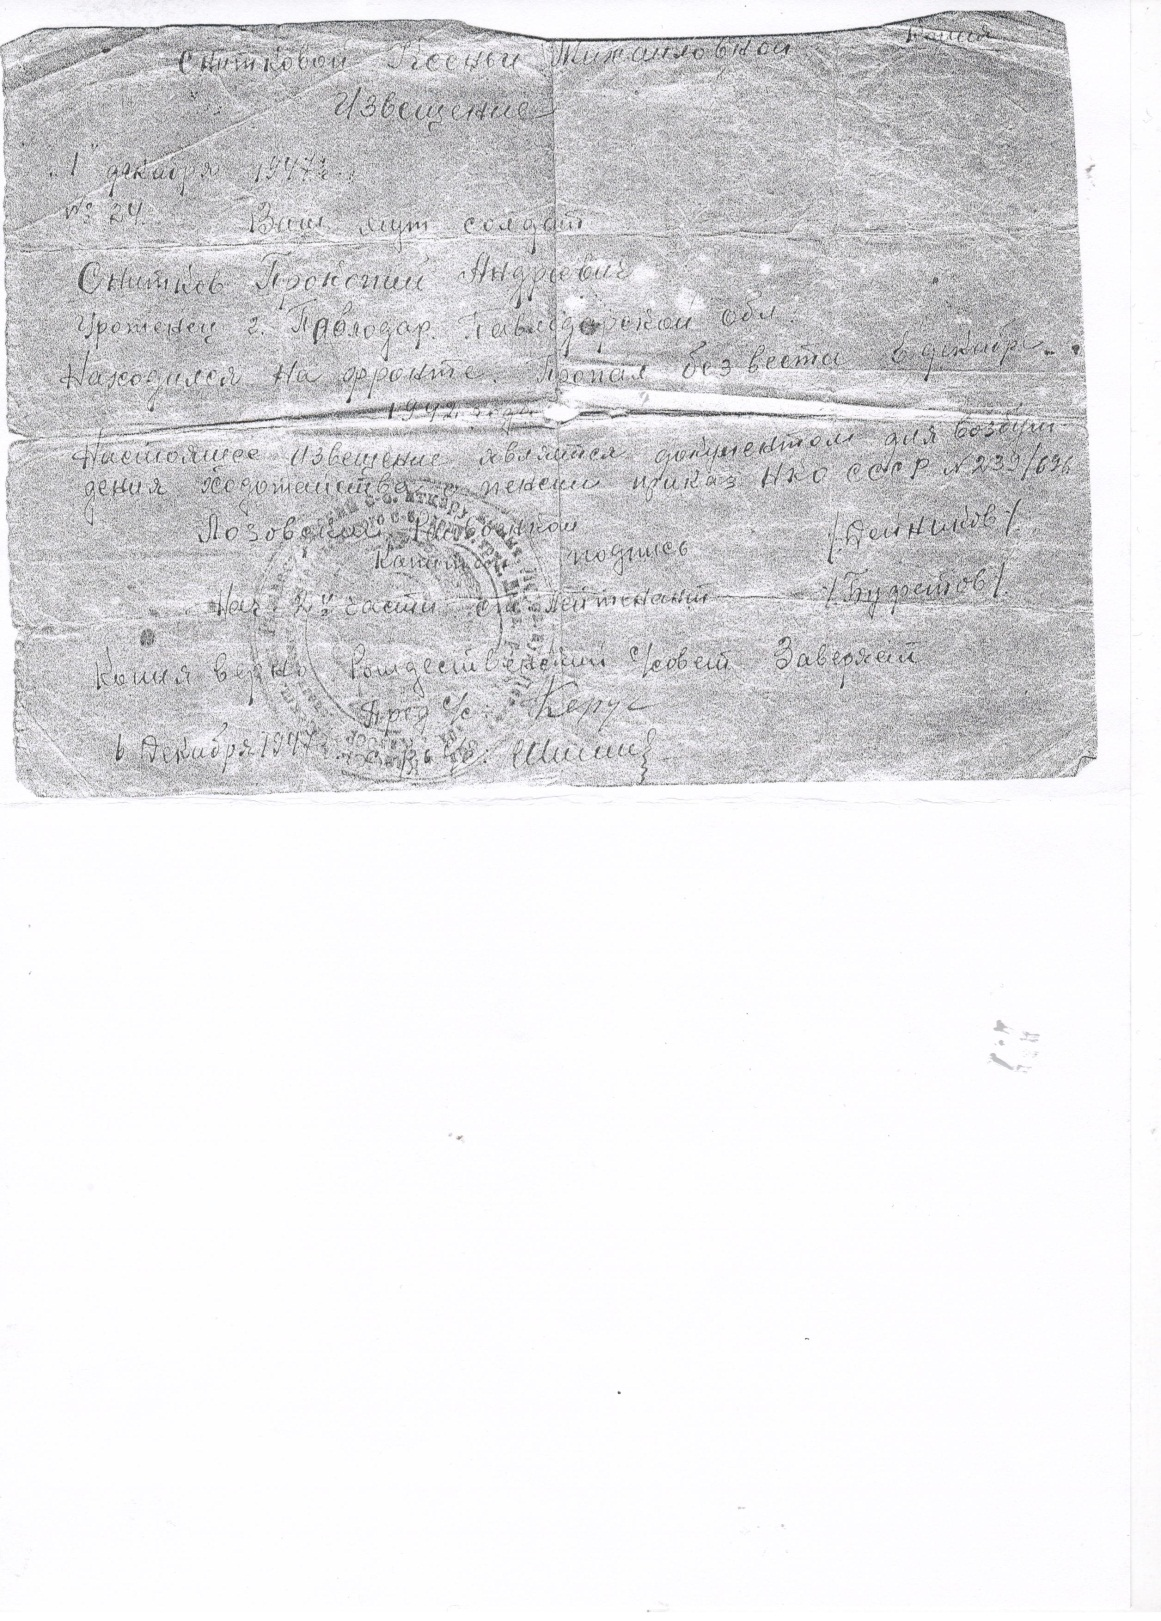 Копия
Снитковой Ксеньи Михаиловной
Извещение
"1" декабря 1947 г.
№ 24 Ваш муж солдат
Снитков Прокопий Андреевич
Уроженец г. Павлодар. Павлодарской обл.
Находился на фронте. Пропал без вести в декабре
1942 года
Настоящее извещение является документом для возбуж-
дения ходотайства о пенсии приказ НКО СССР №239/
Лозовская
Капитан подпись
Нач 2й части ст. лейтенант
Копия верна Рождественский с/совет Заверяет
Пред с/с.
6 декабря 1947 г.